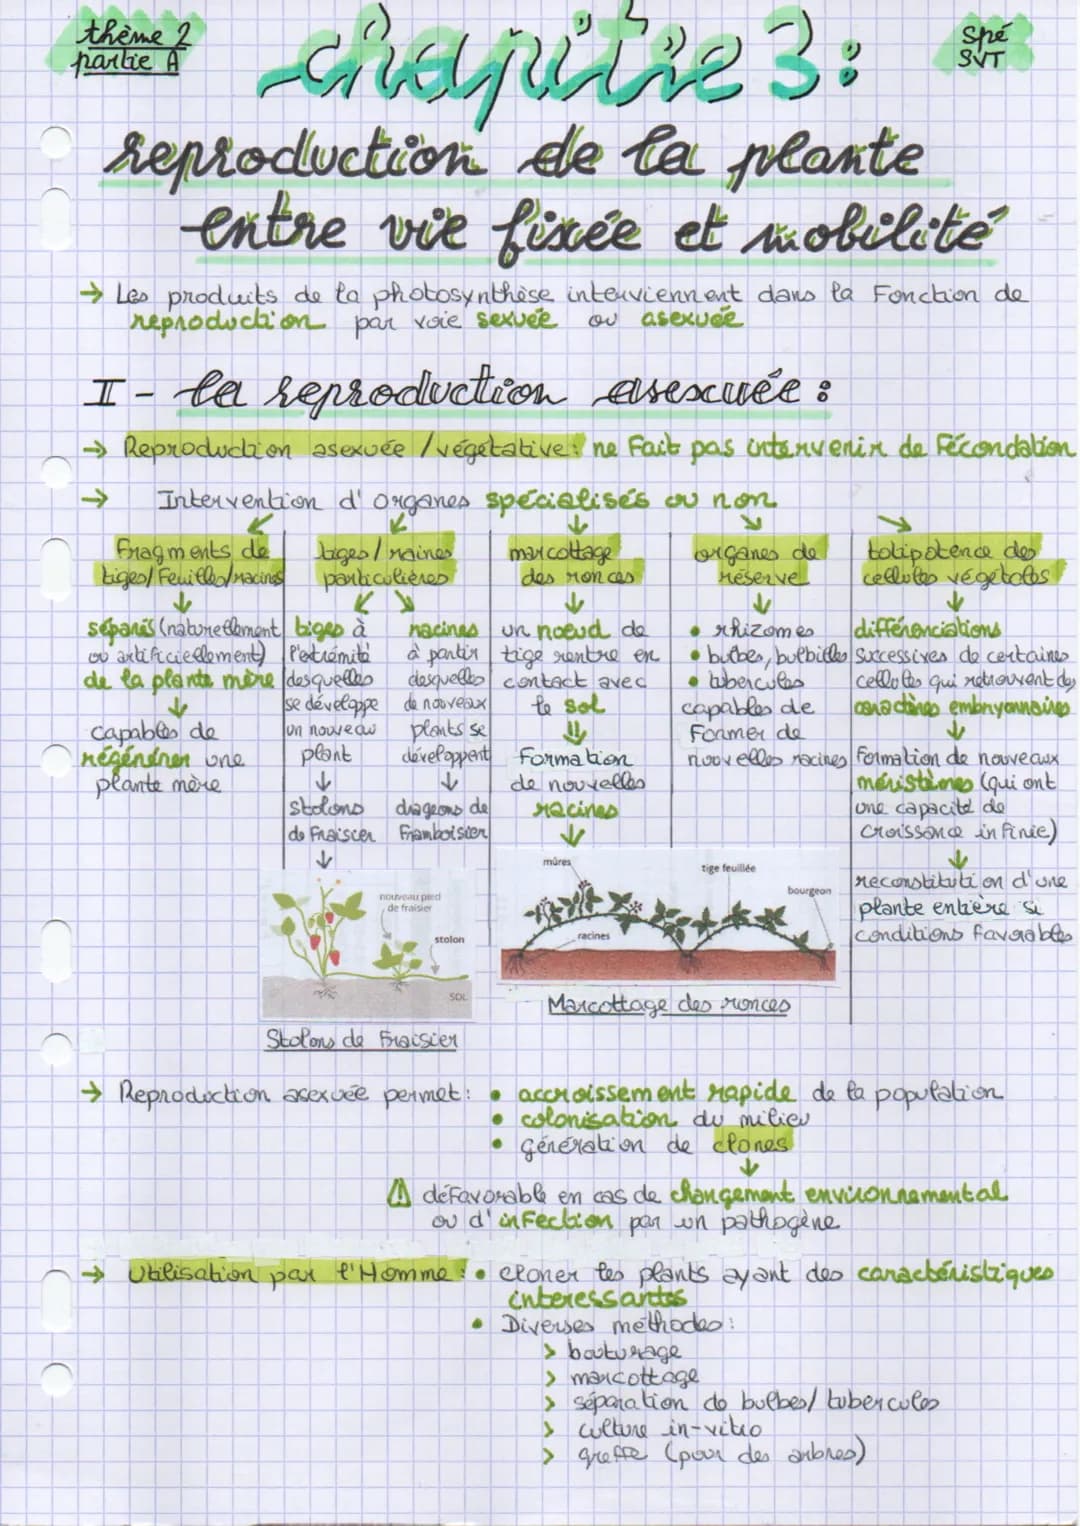 thème 2
partie A
Spé
SVT
chapitre 3:
reproduction de la plante
entre vie fixée et mobilité
→ Les produits de la photosynthèse interviennent dans la Fonction de
reproduction par voie sexuée ou asexuée
I - la reproduction asexuée :
→ Reproduction asexuée / végétative: ne Fait pas intervenir de Fécondation
→ Intervention d'organes spécialisés ou non
Fragments de
tiges/Feuilles/racines
↓
séparés (naturellement
ou artificiellement)
de la plante mère
↓
capables de
régénérer une
plante mère
tiges/racines
particulières
tiges à
l'extrémité
desquelles
se développe
un nouveau
plant
↓
Stolons
de Fraisier
↓
racines
à partir
desquelles
de nouveaux
plants se
développent
↓
drageons de
Framboisier
marcottage
des ronces
↓
un noeud de
tige rentre en
contact avec
le sol
⇓
Formation
de nouvelles
racines
↓
organes de
réserve
↓
• rhizomes
• bulbes, bulbilles
• tubercules
capables de
Former de
nouvelles racines
totipotence des
cellules végétales
↓
différenciations
successives de certaines
cellules qui retrouvent des
caractères embryonnaires
↓
Formation de nouveaux
méristèmes (qui ont
une capacité de
croissance infinie)
↓
reconstitution d'une
plante entière si
conditions favorables
nouveau pied
de fraisier
stolon
SOL
Stolons de Fraisier
mûres
tige feuillée
bourgeon
racines
Marcottage des ronces
→ Reproduction asexuée permet: • accroissement rapide de la population
• colonisation du milieu
• génération de clones
↓
⚠ défavorable en cas de changement environnemental
ou d'infection par un pathogène
→ Utilisation par l'Homme : • cloner les plants ayant des caractéristiques
interessantes
• Diverses méthodes:
> bouturage
> marcottage
> séparation de bulbes/tubercules
> culture in-vitro
> greffe (pour des arbres)